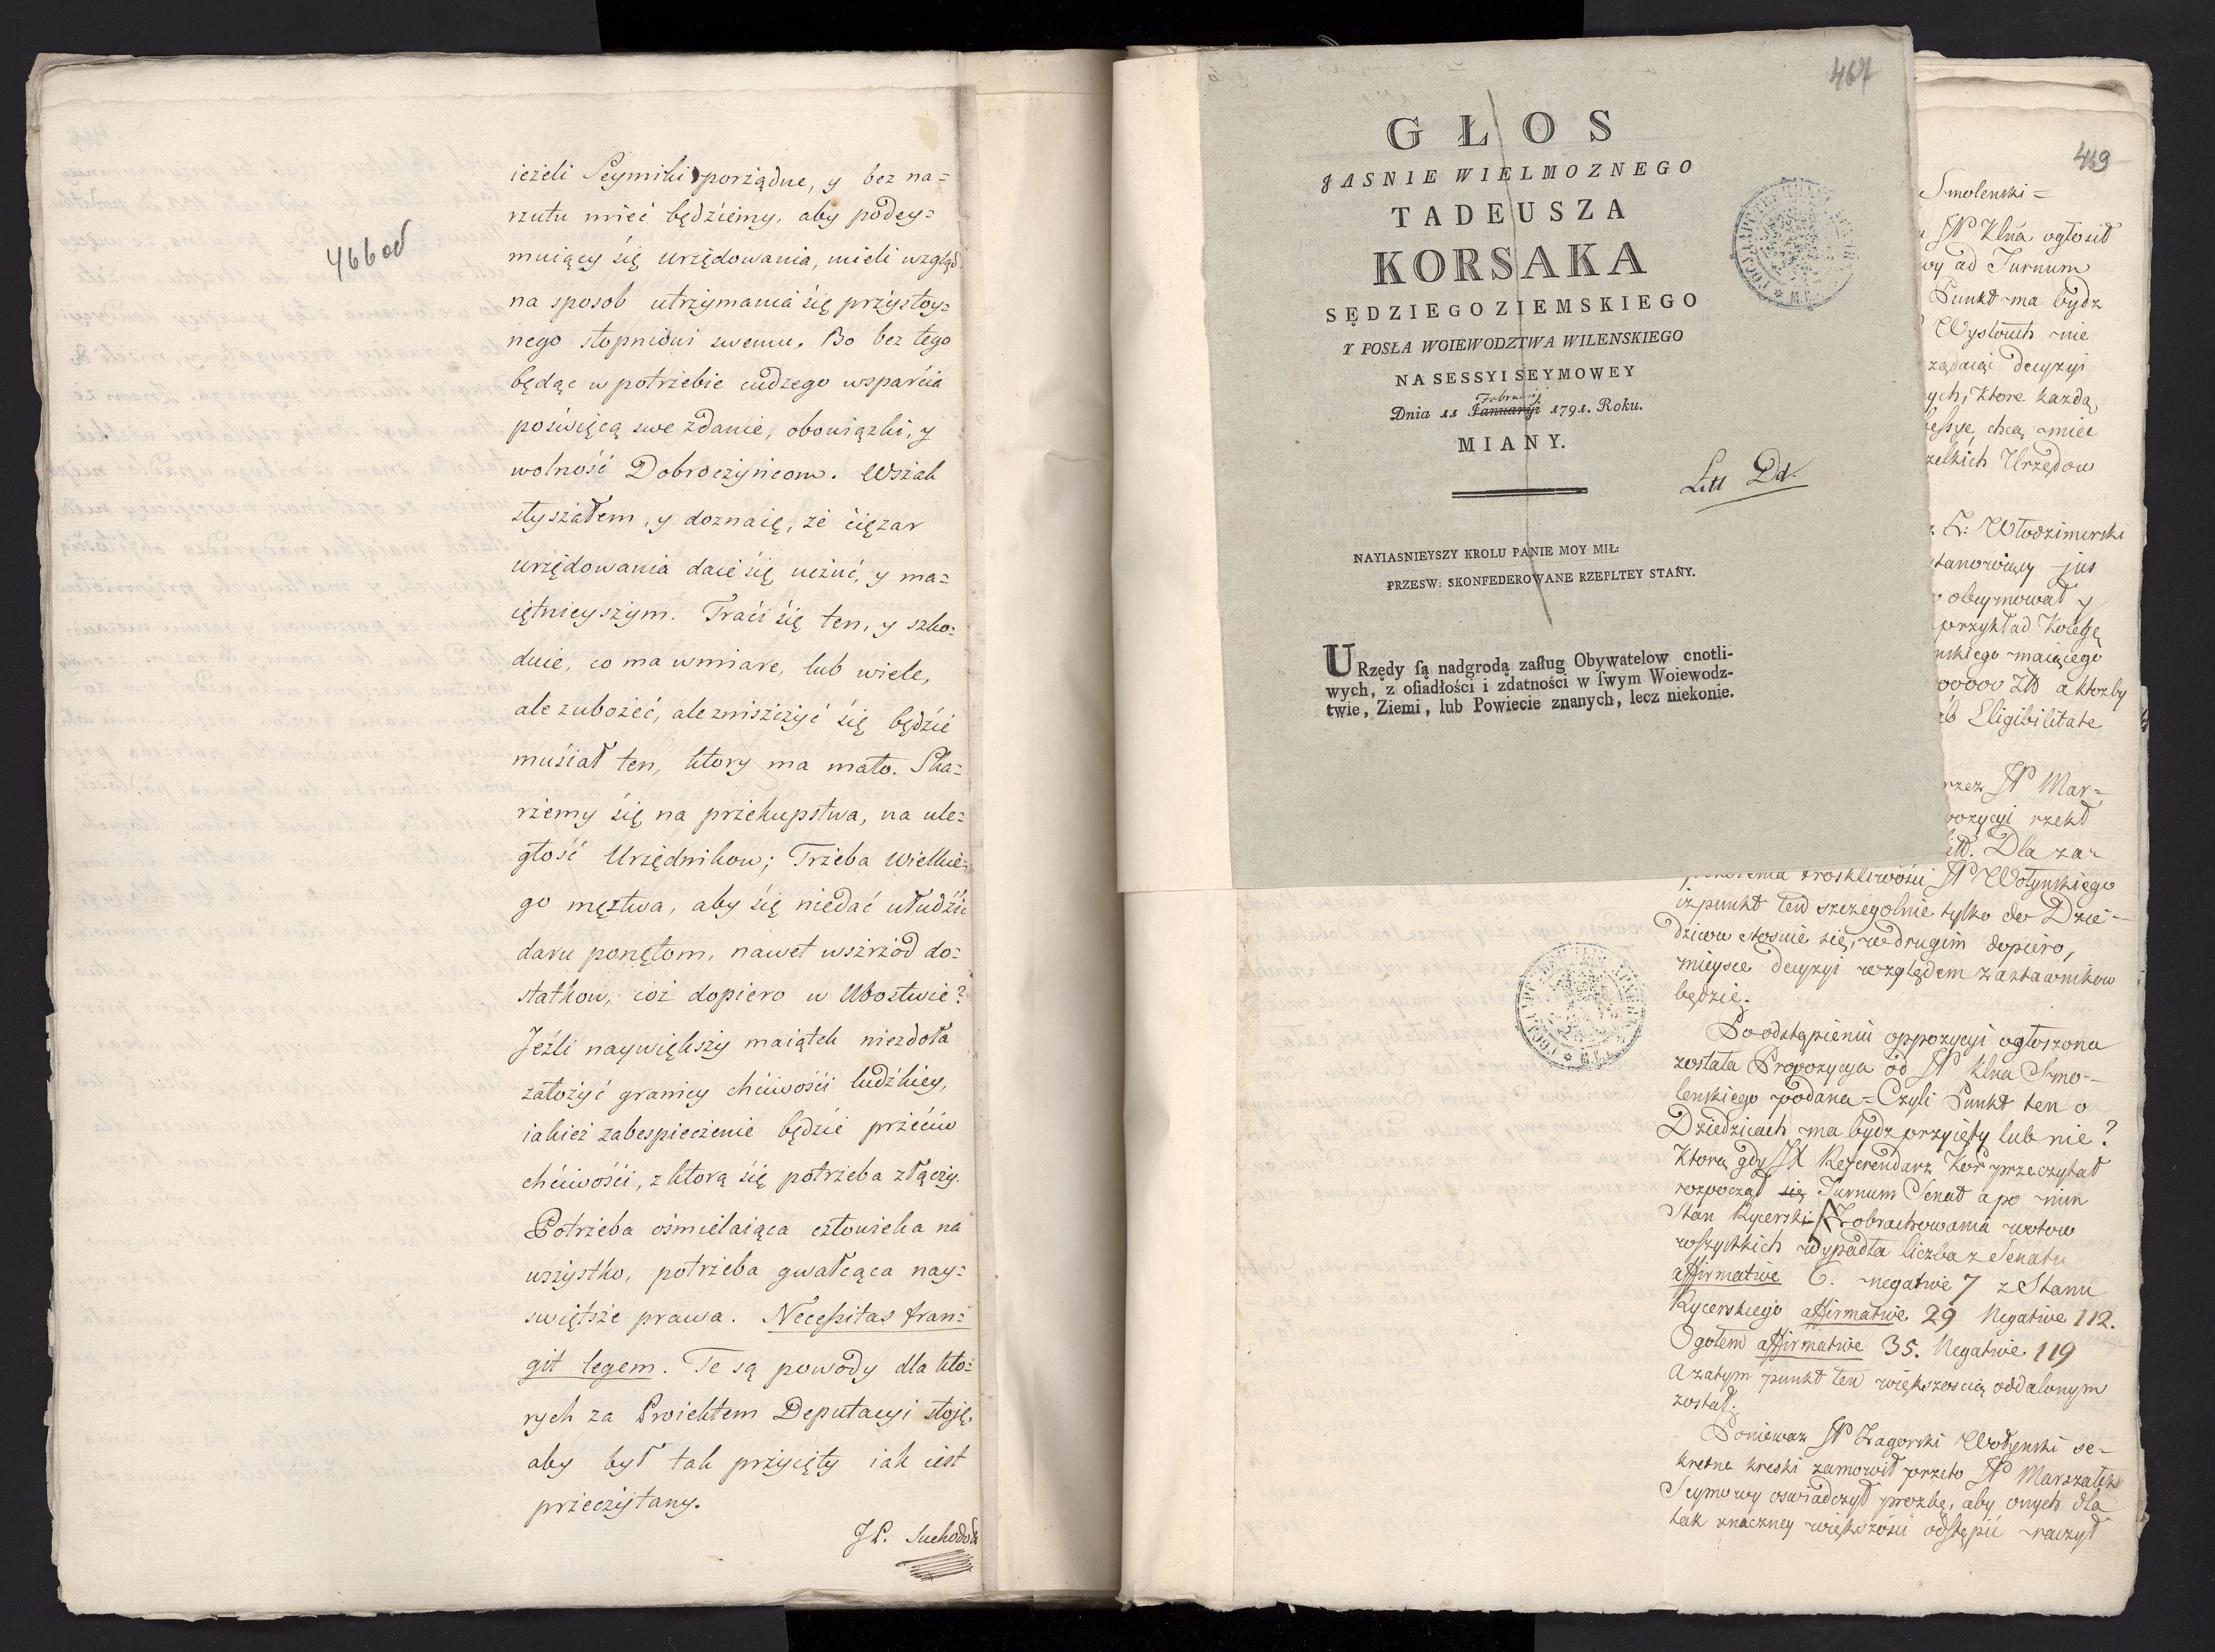 466 od
ieżeli Seymiki porżądne, y bez na=
rzutu mieć będziemy, aby podey=
muiący się urzędowania, mieli wzgląd
na sposob utrzymania się przystoy=
nego stopniowi swemu. Bo bez tego
będąc w potrzebie cudzego wsparcia
poświęcą swe zdanie, obowiązki, y
wolność Dobroczyńcom. Wszak
słyszałem, y doznaię, że ciężar
urzędowania daie się uczuć, y ma=
iętnieyszym. Traci się ten, y szko=
duie, co ma wmiare, lub wiele,
ale zubożeć, ale zniszczyć się będzie
musiał ten, ktory ma mało. Ska=
rżemy się na przekupstwa, na ule=
głość Urzędnikow; Trzeba wielkie=
go męztwa, aby się niedać ułudzić
daru ponętom, nawet wszrzód do=
statkow, coż dopiero w Ubostwie?
Jeźli naywiększy maiątek niezdoła
założyć granicy chciwości ludzkiey,
iakież zabespieczenie będzie przeciw
chciwości, z ktorą się potrzeba złączy.
Potrzeba ośmielaiąca człowieka na
wszystko, potrzeba gwałcąca nay=
swiętsze prawa. Necessitas fran=
git legem. Te są powody dla kto=
rych za Proiektem Deputacyi stoję,
aby był tak przyięty iak iest
przeczytany.
JP. Suchodol
467
GŁOS
JASNIE WIELMOZNEGO
TADEUSZA
KORSAKA
SĘDZIEGO ZIEMSKIEGO
Y POSŁA WOIEWODZTWA WILENSKIEGO
NA SESSYI SEYMOWEY
Februarij
Dnia 11 Januaryi 1791. Roku.
MIANY.
Litt Dd.
NAYIASNIEYSZY KROLU PANIE MOY MIŁ:
PRZESW: SKONFEDEROWANE RZEPLTEY STANY.
URzędy ſą nadgrodą zaſług Obywatelow cnotli-
wych, z oſiadłości i zdatności w ſwym Woiewodz-
twie, Ziemi, lub Powiecie znanych, lecz niekonie.
469
Smolenski =
JP Klna ogłosił
ad Turnum
Punkt ma bydz
Wysłouch nie
decyzyi
ktore każdą
chcą miec
Urzędow
Włodzimirski
jus
obeymował y
przykład Kolegę
maiącego
a ktożby
Eligibilitate
JP Mar=
rzekł
Dla za=
troskliwości JP Wołynskiego
iż punkt ten szczegolnie tylko do Dzie=
dzicow stosuie się, w drugim dopiero,
mieysce decyzyi względem zastawnikow
będzie.
Po odstąpieniu oppozycyi ogłoszona
została Propozycya od JP Klna Smo=
lenskiego podana = Czyli Punkt ten o
Dziedzicach ma bydz przyięty lub nie?
Ktorą gdy JP Referendarz Kor przeczytał
rozpoczął się Turnum Senat a po nim
Stan Rycerski Z obrachowania wotow
wszystkich wypadła liczba z Senatu
affirmative 6. negative 7 z Stanu
Rycerskiego affirmative 29 Negative 112.
Ogołem affirmative 35. Negative 119
A zatym punkt ten większoscią oddalonym
został.
Poniewaz JP Zagorski Wołynski se=
kretne kreski zamowił przeto JP Marszałek
Seymowy oswiadczył prozbę, aby onych dla
tak znaczney większosci odstąpić raczył